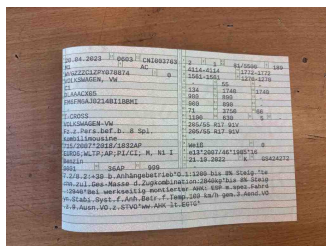 20.04.2023 0603 CNI003763
M1 AC
0
VOLKSWAGEN, VW
C1
T-CROSS
VOLKSWAGEN-VW
Fz.z.Pers.bef.b. 8 Spl.
Kombilimousine
715/2007*2018/1832AP
EURO6;WLTP;AP;PI/CI; M, N1 I
Benzin
0031 36AP 999
2 1 81/5500 193
4114-4114 1772-1772
1551-1551 1270-1270
55
134 1740 1740
980 890
980 890
71 3750 66
1100 630 5
205/55 R17 91V
205/55 R17 91V
Weiß 0
e13*2007/46*1985*16
21.10.2022 K 05424272
7.2/8.2:+30 b.Anhängebetrieb*O.1:1200 bis 8% Steig.*te
chn.zul.Ges-Masse d.Zugkombination:2840kg*bis 8% Steig
.:2940*Bei werkseitig montierter AHK: ESP m.spez.Fahrd
yn.Stabi.Syst.f.Anh.Betr.f.Temp.100 km/h gem.3.Aend.VO
z.9.Ausn.VO.z.STVO*ww.AHK lt.EGTG*